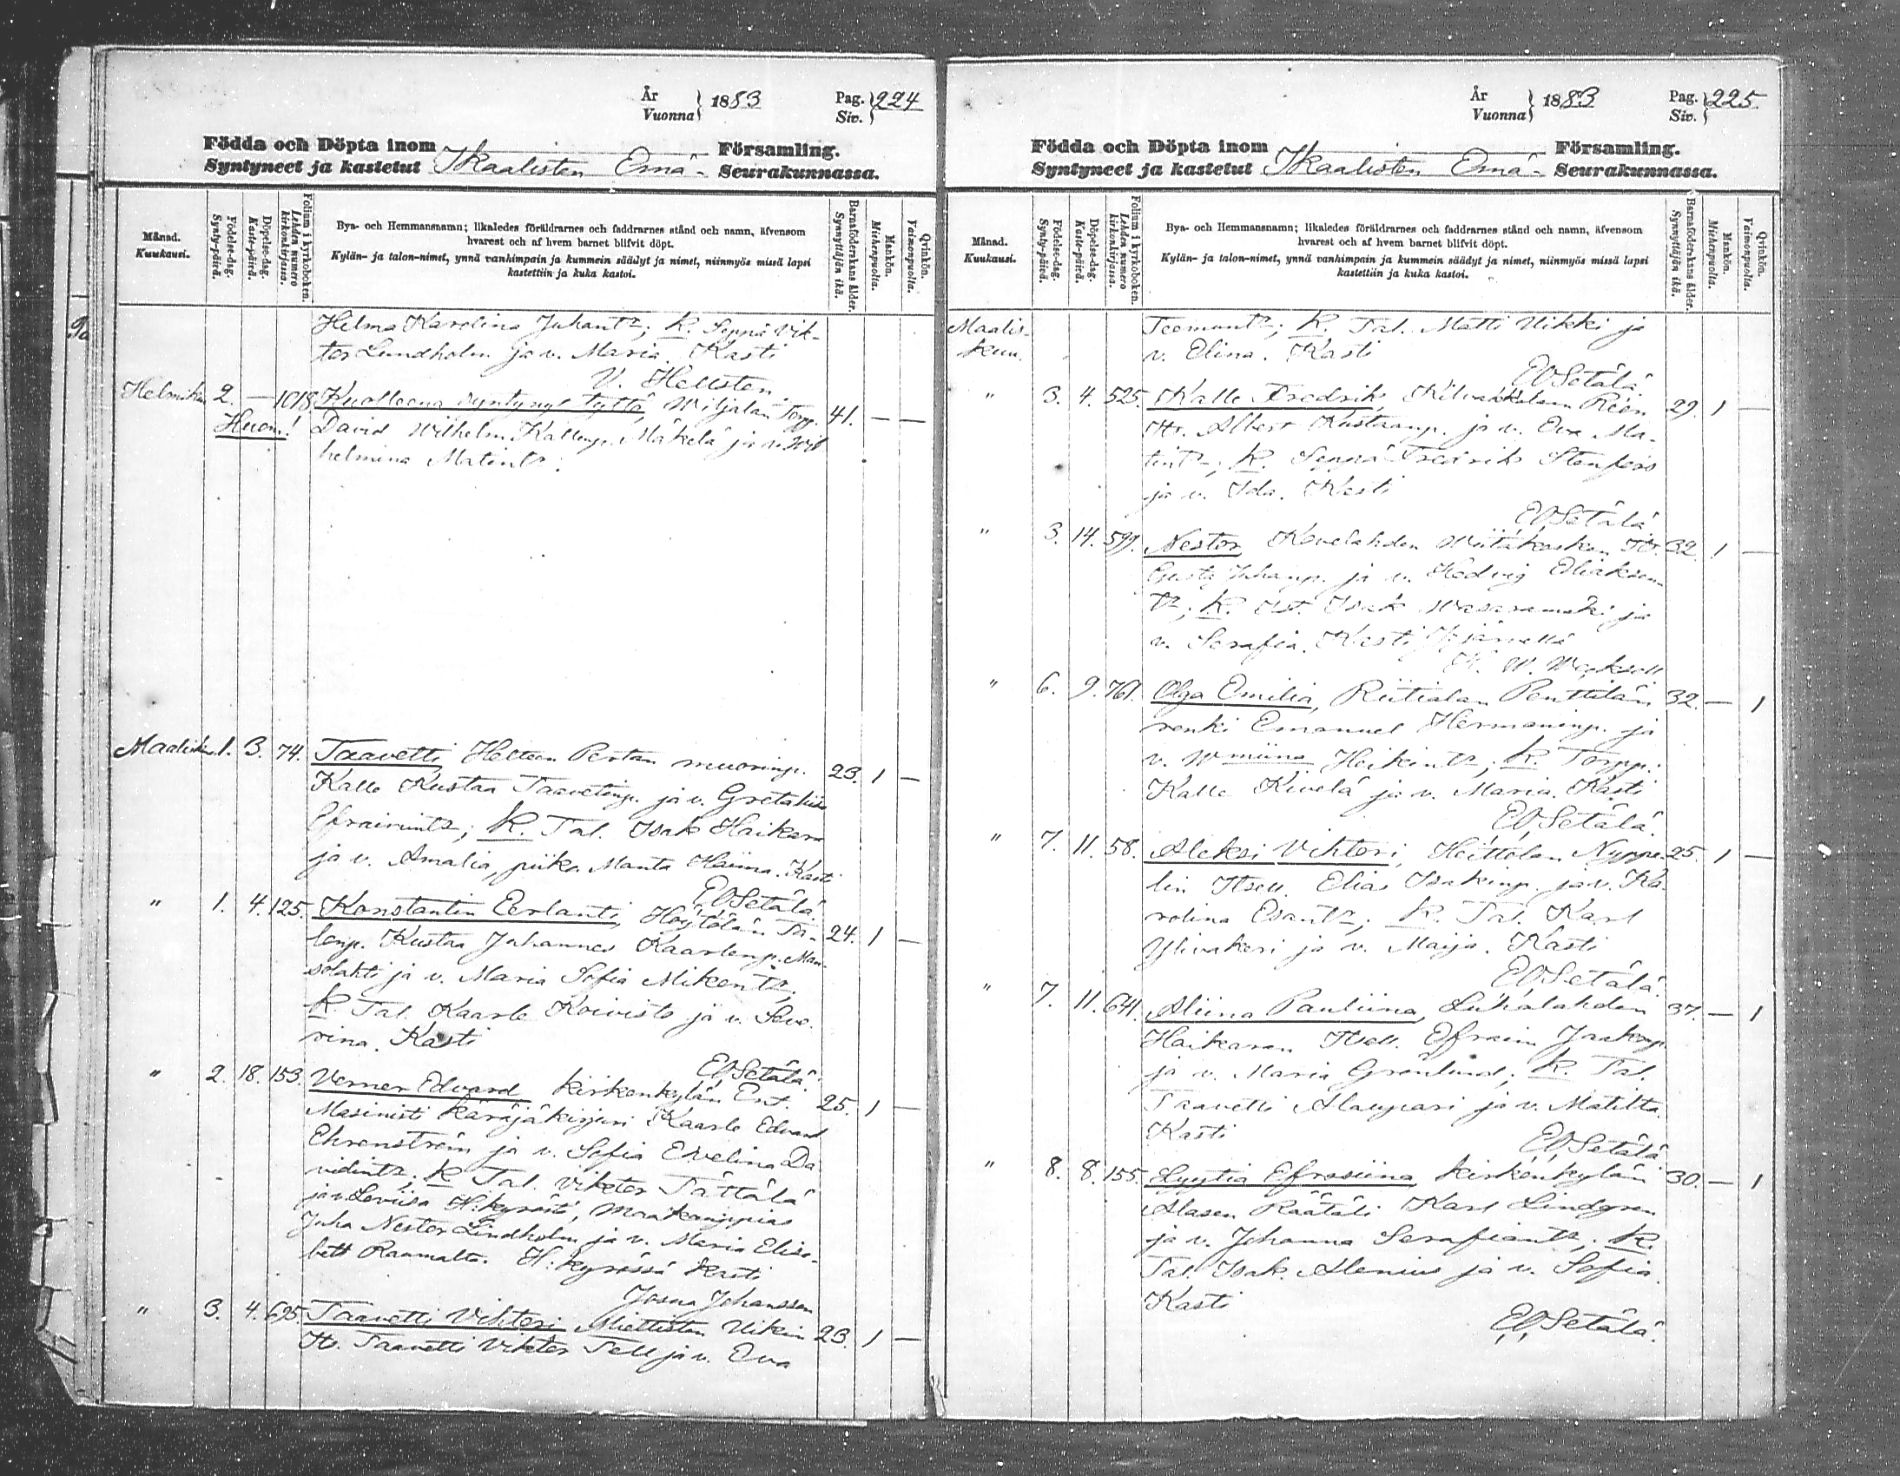 År
Vuonna } 1883 Pag.
Siv. } 224
Födda och Döpta inom
Syntyneet ja kastetut Ikaalisten Emä- Församling.
Seurakunnassa.
Månad.
Kuukausi.
Födelse-dag.
Synty-päivä.
Döpelse-dag.
Kaste-päivä.
Folium i kyrkoboken.
Lehden numero
kirkonkirjassa.
Bya- och Hemmansnamn; likaledes föräldrarnes och faddrarnes stånd och namn, äfvensom
hvarest och af hvem barnet blifvit döpt.
Kylän- ja talon-nimet, ynnä vanhimpain ja kummein säädyt ja nimet, niinmyös missä lapsi
kastettiin ja kuka kastoi.
Barnaföderskans ålder.
Synnyttäjän ikä.
Mankön.
Miehenpuolia.
Qvinkön.
Vaimonpuolia.
Helma Karolina Juhant:; K. Seppä Vik-
tor Lundholm ja v. Maria. Kasti
V. Hellsten.
Helmikuu 2. — 1018 Kuolleena syntynyt tyttö, Wiljalan Torpp. 41. — —
Huom! David Wilhelm Kallenp. Mäkelä ja v. Wil
helmina Matint:
Maalisku 1. 3. 74. Taavetti, Heltan Pertan muorinp. 23. 1 —
Kalle Kustaa Taavetinp. ja v. Greta
Efraimint:; K. Tal. Isak Haikara
ja v. Amalia, piika Manta Kasti
EOSetälä.
" 1. 4. 125. Konstantin Eerlanti, Höytölän Ta- 24. 1 —
lonp. Kustaa Juhannes Kaarlenp. Man-
solahti ja v. Maria Sofia Mikent:,
K. Tal. Kaarle Koivisto ja v. Seve-
rina. Kasti
EOSetälä.
" 2. 18. 153. Verner Edvard Kirkonkylän Ent. 25. 1 —
Masinisti käräjäkirjuri Kaarle Edvard
Ehrenström ja v. Sofia Evelina Da
vidint:; K Tal. Viktor Tättälä
ja v. Loviisa H:kyröstä, maakauppias
Juha Nestor Lindholm ja v. Maria Elisa-
bett Raumalta. H:kyrössä kasti
Josua Johansson
" 3. 4. 695. Taavetti Vihtori Miettistön Uikin 23. 1 —
Itr. Taavetti Viktor Tell ja v. Eva
År
Vuonna } 1883 Pag.
Siv. } 225.
Födda och Döpta inom
Syntyneet ja kastetut Ikaalisten Emä- Församling.
Seurakunnassa.
Månad.
Kuukausi.
Födelse-dag.
Synty-päivä.
Döpelse-dag.
Kaste-päivä.
Folium i kyrkoboken.
Lehden numero
kirkonkirjassa.
Bya- och Hemmansnamn; likaledes föräldrarnes och faddrarnes stånd och namn, äfvensom
hvarest och af hvem barnet blifvit döpt.
Kylän- ja talon-nimet, ynnä vanhimpain ja kummein säädyt ja nimet, niinmyös missä lapsi
kastettiin ja kuka kastoi.
Barnaföderskans ålder.
Synnyttäjän ikä.
Mankön.
Miehenpuolia.
Qvinkön.
Vaimonpuolia.
Maalis- Teemunt:; K. Tal. Matti Uikki ja
kuu. v. Elina. Kasti
EOSetälä
" 3. 4. 525. Kalle Fredrik, Kilvakkalan 29. 1 —
Itr. Albert Kustaanp. ja v. Eva Ma-
tint:; K. Seppä Fredrik Stenfors
ja v. Ida. Kasti
EOSetälä
" 3. 14. 599. Nestor Kovelahden Itr. 32 1 —
Gusta Juhanp. ja v. Hedvig Eliaksen
t:; K. Isak ja
v. Serafia. Kasti
" 6. 9. 761. Olga Emilia, Riitialan Penttilän 32. — 1
renki Emanuel Hermaninp. ja
v. Wmiina Heikint:; K. Torpp.
Kalle Kivelä ja v. Maria. Kasti
EOSetälä.
" 7. 11. 58. Aleksi Vihtori, Heittolan Nyppe- 25. 1 —
lin Itsell. Elias Isakinp. ja v. Ka-
rolina Esant:; K. Tal. Karl
Ylivakeri ja v. Maija. Kasti
EOSetälä.
" 7. 11. 641. Aliina Pauliina, Luhalahden 37. — 1
Haikaran Itsell. Efraim Jaakonp.
ja v. Maria Grönlund; K. Tal.
Taavetti Alaupari ja v. Matilta.
Kasti
EOSetälä
" 8. 8. 155. Lyytia Efrosiina Kirkonkylän 30. — 1
Alasen Räätäli Karl Lindgren
ja v. Johanna Serafiant:; K.
Tal. Isak Alenius ja v. Sofia.
Kasti
EOSetälä.